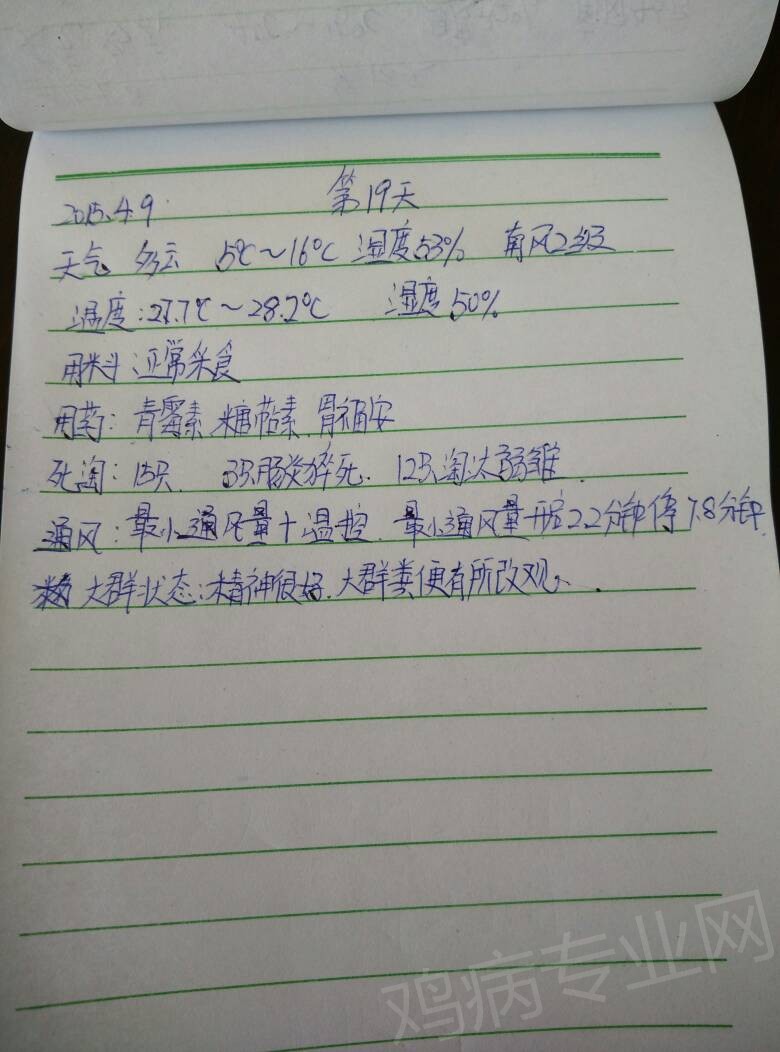 2015.4.9 第19天
天气 多云 5℃~16℃ 湿度53% 南风2级
温度:27.7℃~28.2℃ 湿度50%
用料:正常采食
用药:青霉素.糖萜素.胃福安
死淘:15只. 3只肠炎猝死. 12只淘汰弱雏.
通风:最小通风量+温控. 最小通风量开启2.2分钟停7.8分钟.
大群状态:精神很好.大群粪便有所改观.
鸡病专业网